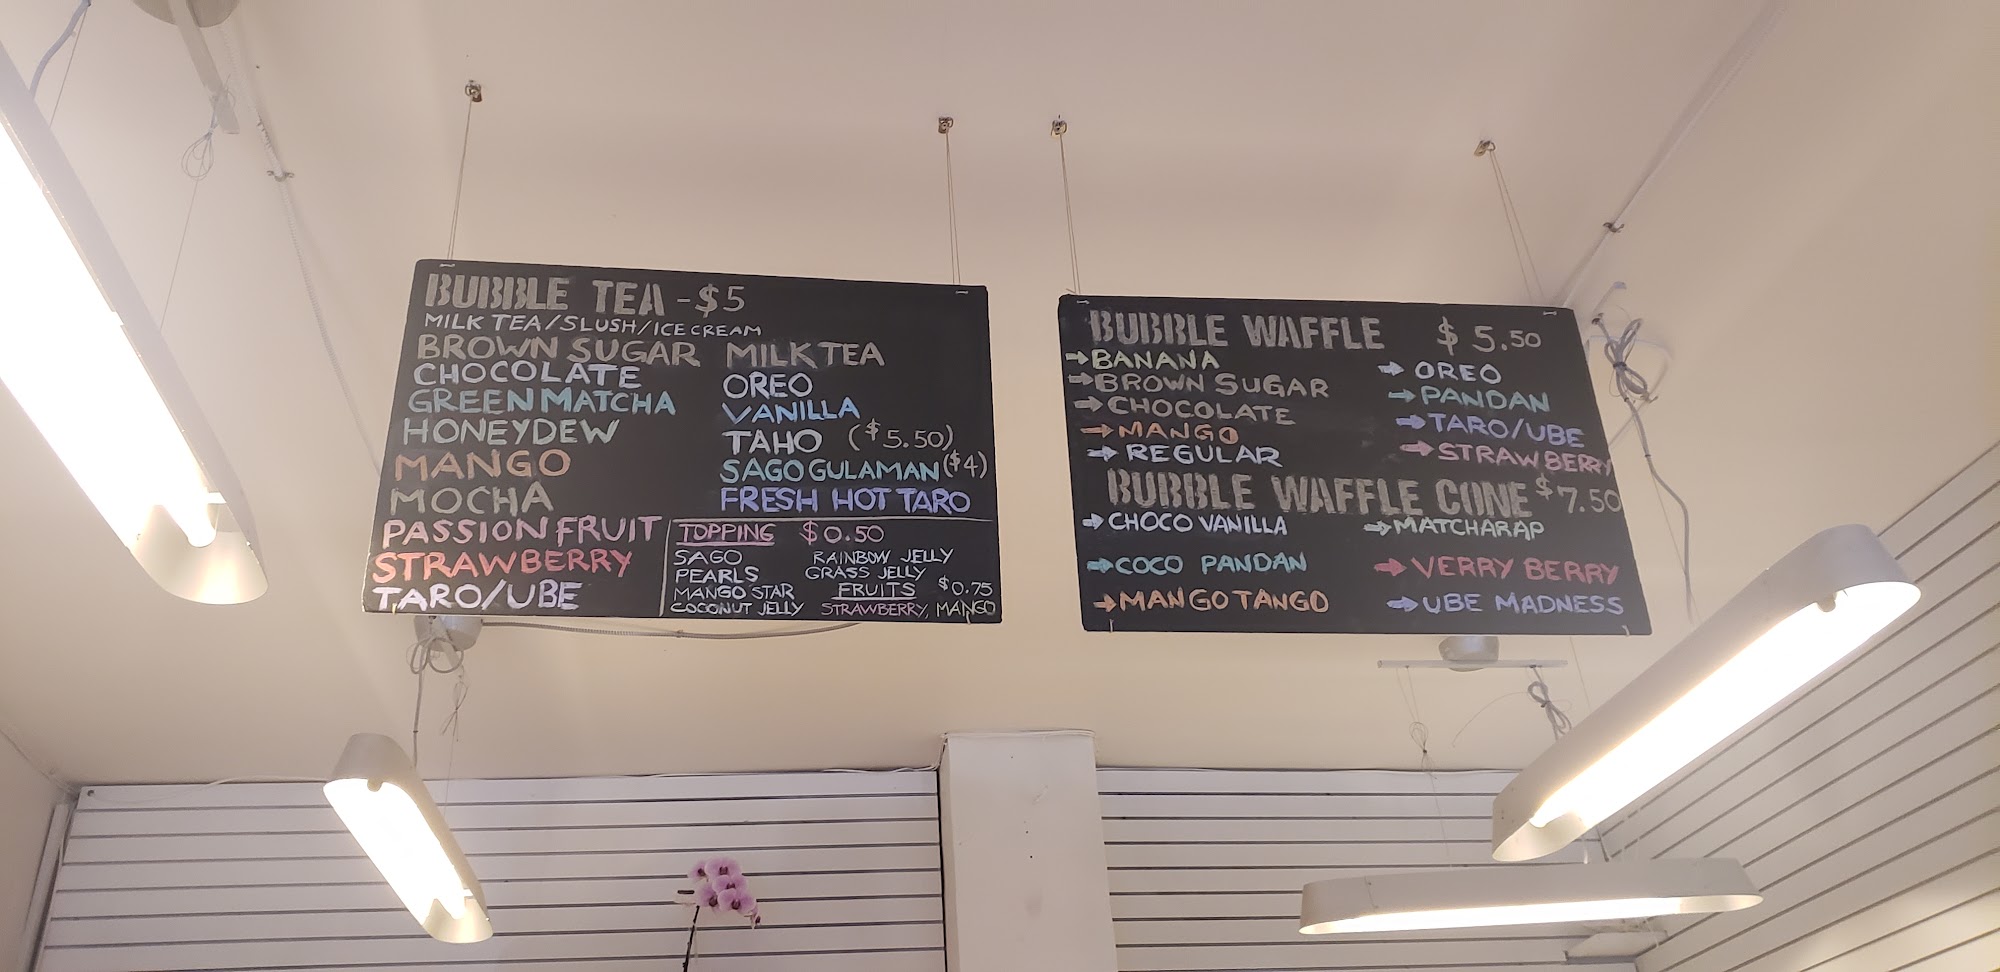 BUBBLE TEA - $5
MILK TEA/SLUSH/ICE CREAM
BROWN SUGAR
CHOCOLATE
GREEN MATCHA
HONEYDEW
MANGO
MOCHA
PASSION FRUIT
STRAWBERRY
TARO/UBE
MILK TEA
OREO
VANILLA
TAHO ($5.50)
SAGO GULAMAN ($4)
FRESH HOT TARO
TOPPING $0.50
SAGO
PEARLS
MANGO STAR
COCONUT JELLY
RAINBOW JELLY
GRASS JELLY
FRUITS $0.75
STRAWBERRY, MANGO
BUBBLE WAFFLE $5.50
→BANANA
→BROWN SUGAR
→CHOCOLATE
→MANGO
→REGULAR
→OREO
→PANDAN
→TARO/UBE
→STRAWBERRY
BUBBLE WAFFLE CONE $7.50
→CHOCO VANILLA
→COCO PANDAN
→MANGO TANGO
→MATCHARAP
→VERRY BERRY
→UBE MADNESS